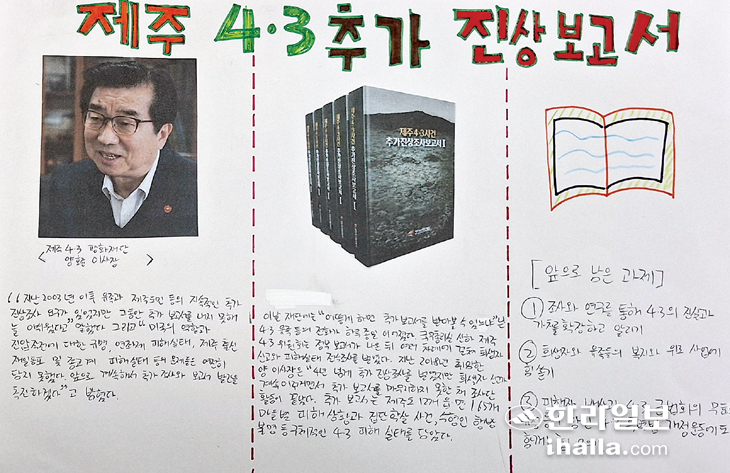 제주 4·3 추가 진상보고서
제주 4·3 평화재단
< 양조훈 이사장 >
"지난 2003년 이후 유족과 제주도민 등의 지속적인 추가
진상조사 요구가 있었지만 그동안 추가 보고서를 내지 못해
늘 아쉬웠다"고 말했다. 그리고 "미국의 역할과
진압조건에 대한 규명, 연좌제 피해실태, 제주 출신
재일동포 및 종교계 피해실태 등의 문제는 여전히
담지 못했다. 앞으로 계속해서 추가 조사와 보고서 발간을
추진하겠다"고 밝혔다.
제주4·3사건
추가진상조사보고서 I
이날 재단에는 "어떻게 하면 추가보고서를 받아볼 수 있느냐"는
4·3 유족 등의 전화가 하루종일 이어졌다. 국무총리 산하 제주
4·3위원회는 정부 보고서가 나온 뒤 여러 차례에 걸쳐 희생자
신고와 피해실태 전수조사를 벌였다. 지난 2018년 취임한
양 이사장은 "4년 넘게 추가 진상조사를 벌였지만 희생자 신고가
계속 이어지면서 추가 보고서를 마무리하지 못한 채 조사단
활동이 끝났다. 추가 보고서는 제주도 12개 읍·면 165개
마을별 피해 상황과 집단학살 사건, 수형인 행방
불명 등 구체적인 4·3 피해 실태를 담았다.
[앞으로 남은 과제]
① 조사와 연구를 통해 4·3의 진실과
가치를 확장하고 알리기
② 희생자와 유족들의 복지와 위로 사업에
힘쓰기
③ 피해자
한라일보
ihalla.com